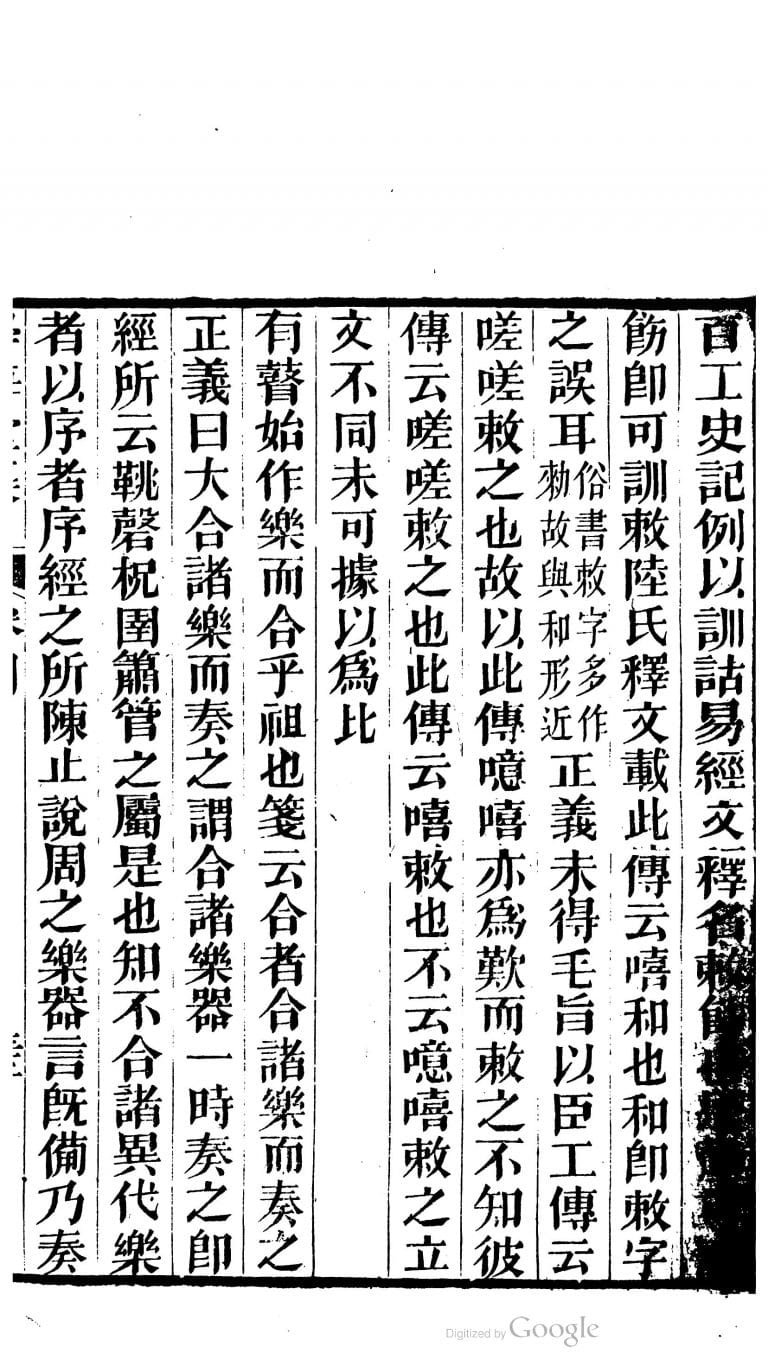 百工史記例以訓詁易經文釋名敕飭也
飭卽可訓敕陸氏釋文載此傳云嘻和也和卽敕字
之誤耳俗書敕字多作勑故與和形近正義未得毛旨以臣工傳云
嗟嗟敕之也故以此傳噫嘻亦爲歎而敕之不知彼
傳云嗟嗟敕之也此傳云嘻敕也不云噫嘻敕之立
文不同未可據以爲比
有瞽始作樂而合乎祖也箋云合者合諸樂而奏之
正義曰大合諸樂而奏之謂合諸樂器一時奏之卽
經所云鞉磬柷圉簫管之屬是也知不合諸異代樂
者以序者序經之所陳止說周之樂器言旣備乃奏
Digitized by Google